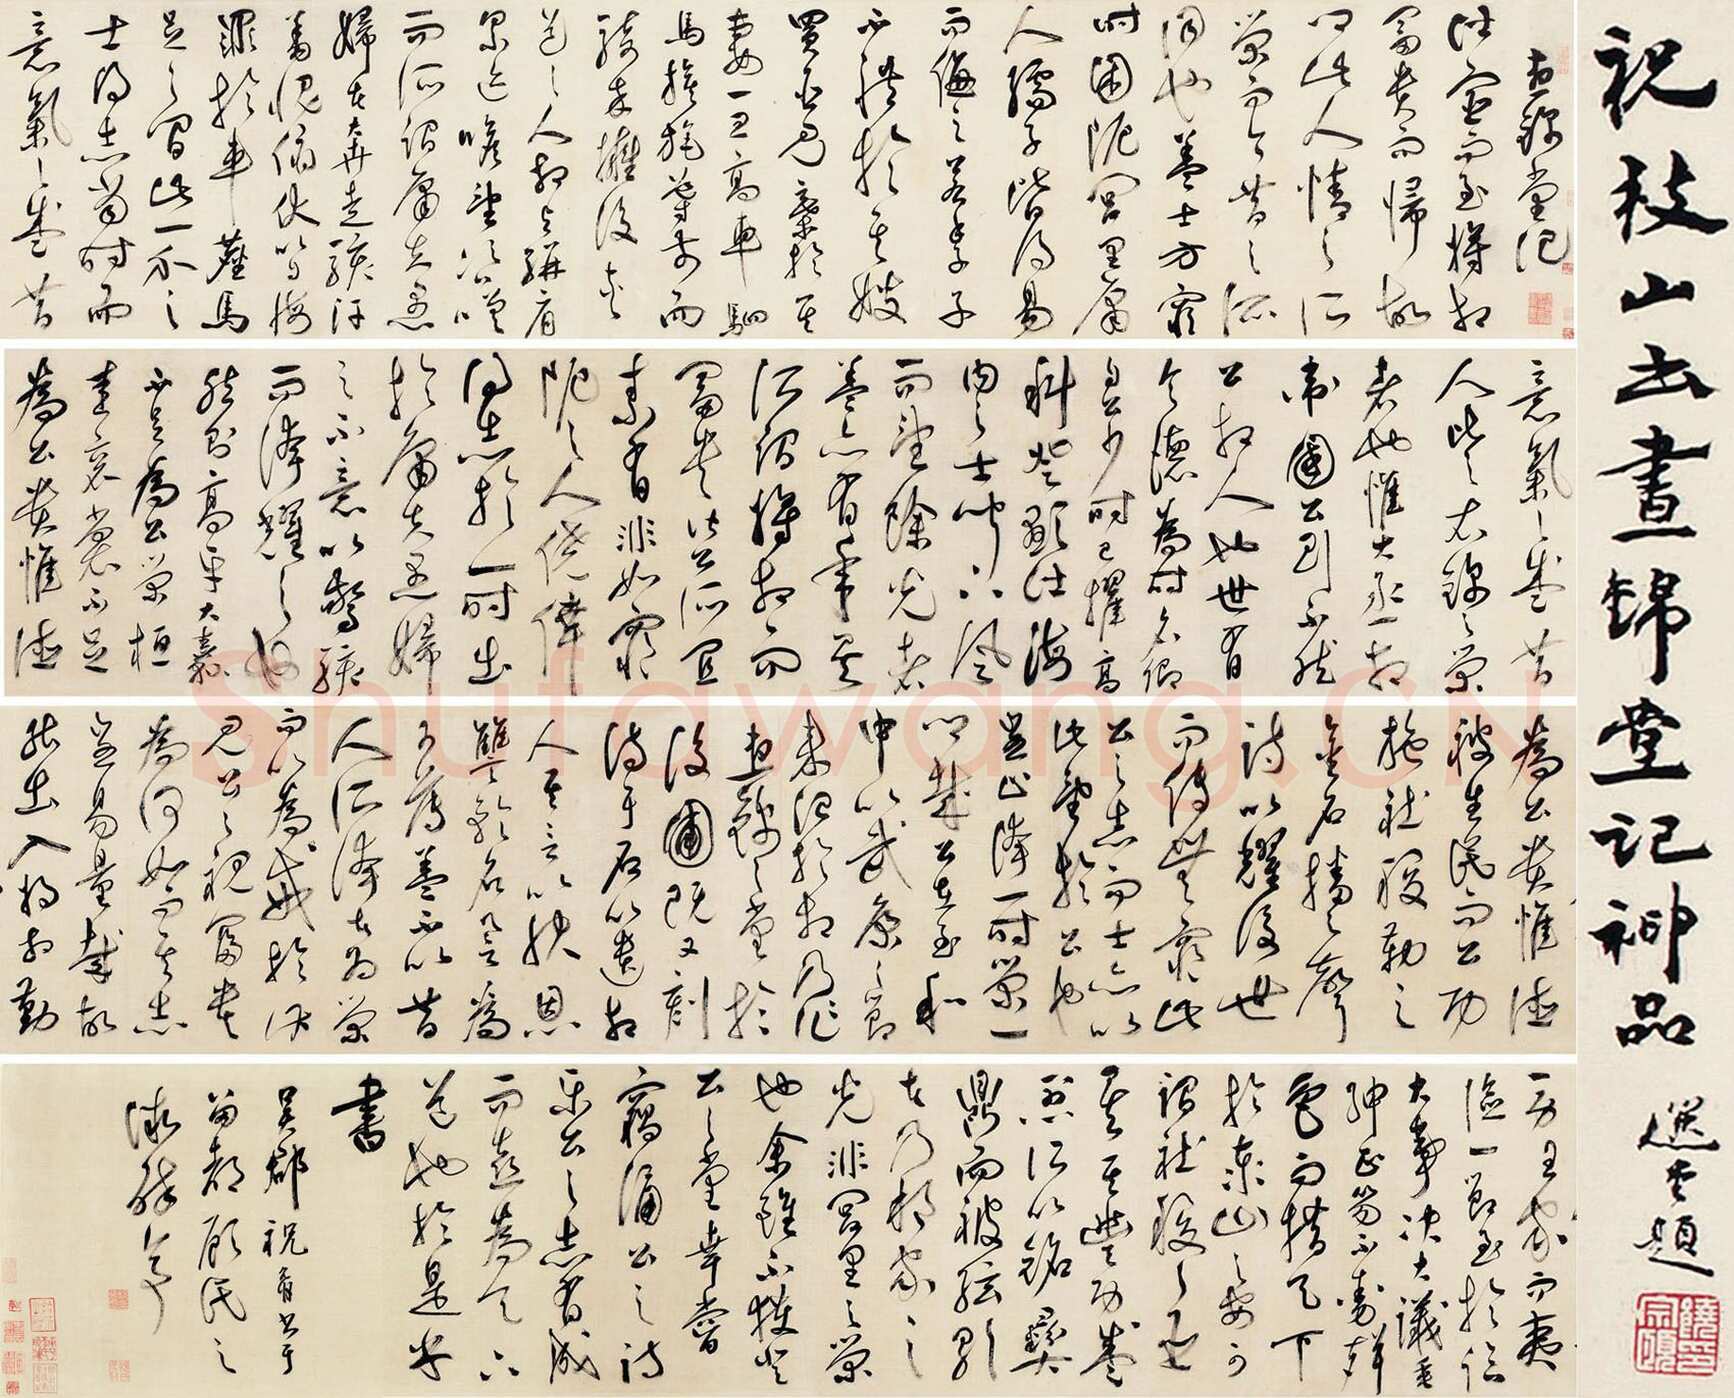 祝枝山书晝錦堂記神品
選堂題
晝錦堂記
仕宦而至將相
富貴而歸故
鄉此人情之所
榮而今昔之所
同也蓋士方窮
時困阨閭里庸
人孺子皆得易
而侮之若季子
不禮於其嫂
買臣見棄於其
妻一旦高車駟
馬旗旄導前而
騎卒擁後夾
道之人相與駢肩
累迹瞻望咨嗟
而所謂庸夫愚
婦者奔走駭汗
羞愧俯伏以自悔
罪於車塵馬
足之間此一介之
士得志當時而
意氣之盛昔
意氣之盛昔
人比之衣錦之榮
者也惟大丞相
衛國公則不然
公相人也世有
令德為時名卿
自公少時已擢高
科登顯仕海
內之士聞下風
而望餘光者
蓋亦有年矣
所謂將相而
富貴皆公所宜
素有非如窮
阨之人僥倖
得志於一時出
於庸夫愚婦
之不意以驚駭
而誇耀之也
然則高牙大纛
不足為公榮桓
圭袞裳不足
為公貴惟德
為公貴惟德
被生民而功
施社稷勒之
金石播之聲
詩以耀後世
而傳無窮此
公之志而士亦以
此望於公也
豈止誇一時榮一
鄉哉公在至和
中以武康之節
來治於相乃作
晝錦之堂於
後圃既又刻
詩于石以遺相
人其言以快恩
讎矜名譽為
可薄蓋不以昔
人所誇者為榮
而以為戒於此
見公之視富貴
為何如而其志
豈易量哉故
能出入將相勤
勞王家而夷
險一節至於臨
大事決大議垂
紳正笏不動聲
色而措天下
於泰山之安可
謂社稷之臣
矣其豐功盛
烈所以銘彝
鼎而被絃歌
者乃邦家之
光非閭里之榮
也余雖不獲登
公之堂幸嘗
竊誦公之詩
樂公之志有成
而喜為天下
道也於是乎
書
吳郡祝
留都顧氏之
Shufawang.CN